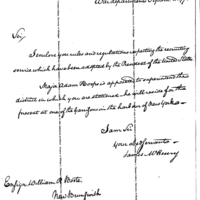 War department
Sir,
I enclose you rules and regulations respecting the recruiting
service which have been adopted by the President of the United States
Major Adam Hoops is appointed to superintend the
district in which you are stationed. he will reside for the
present at one of the Garrisons in the harbor of New York.
I am Sir
Your obd Servant
James McHenry
Ensign William R Boote
New Brunswick